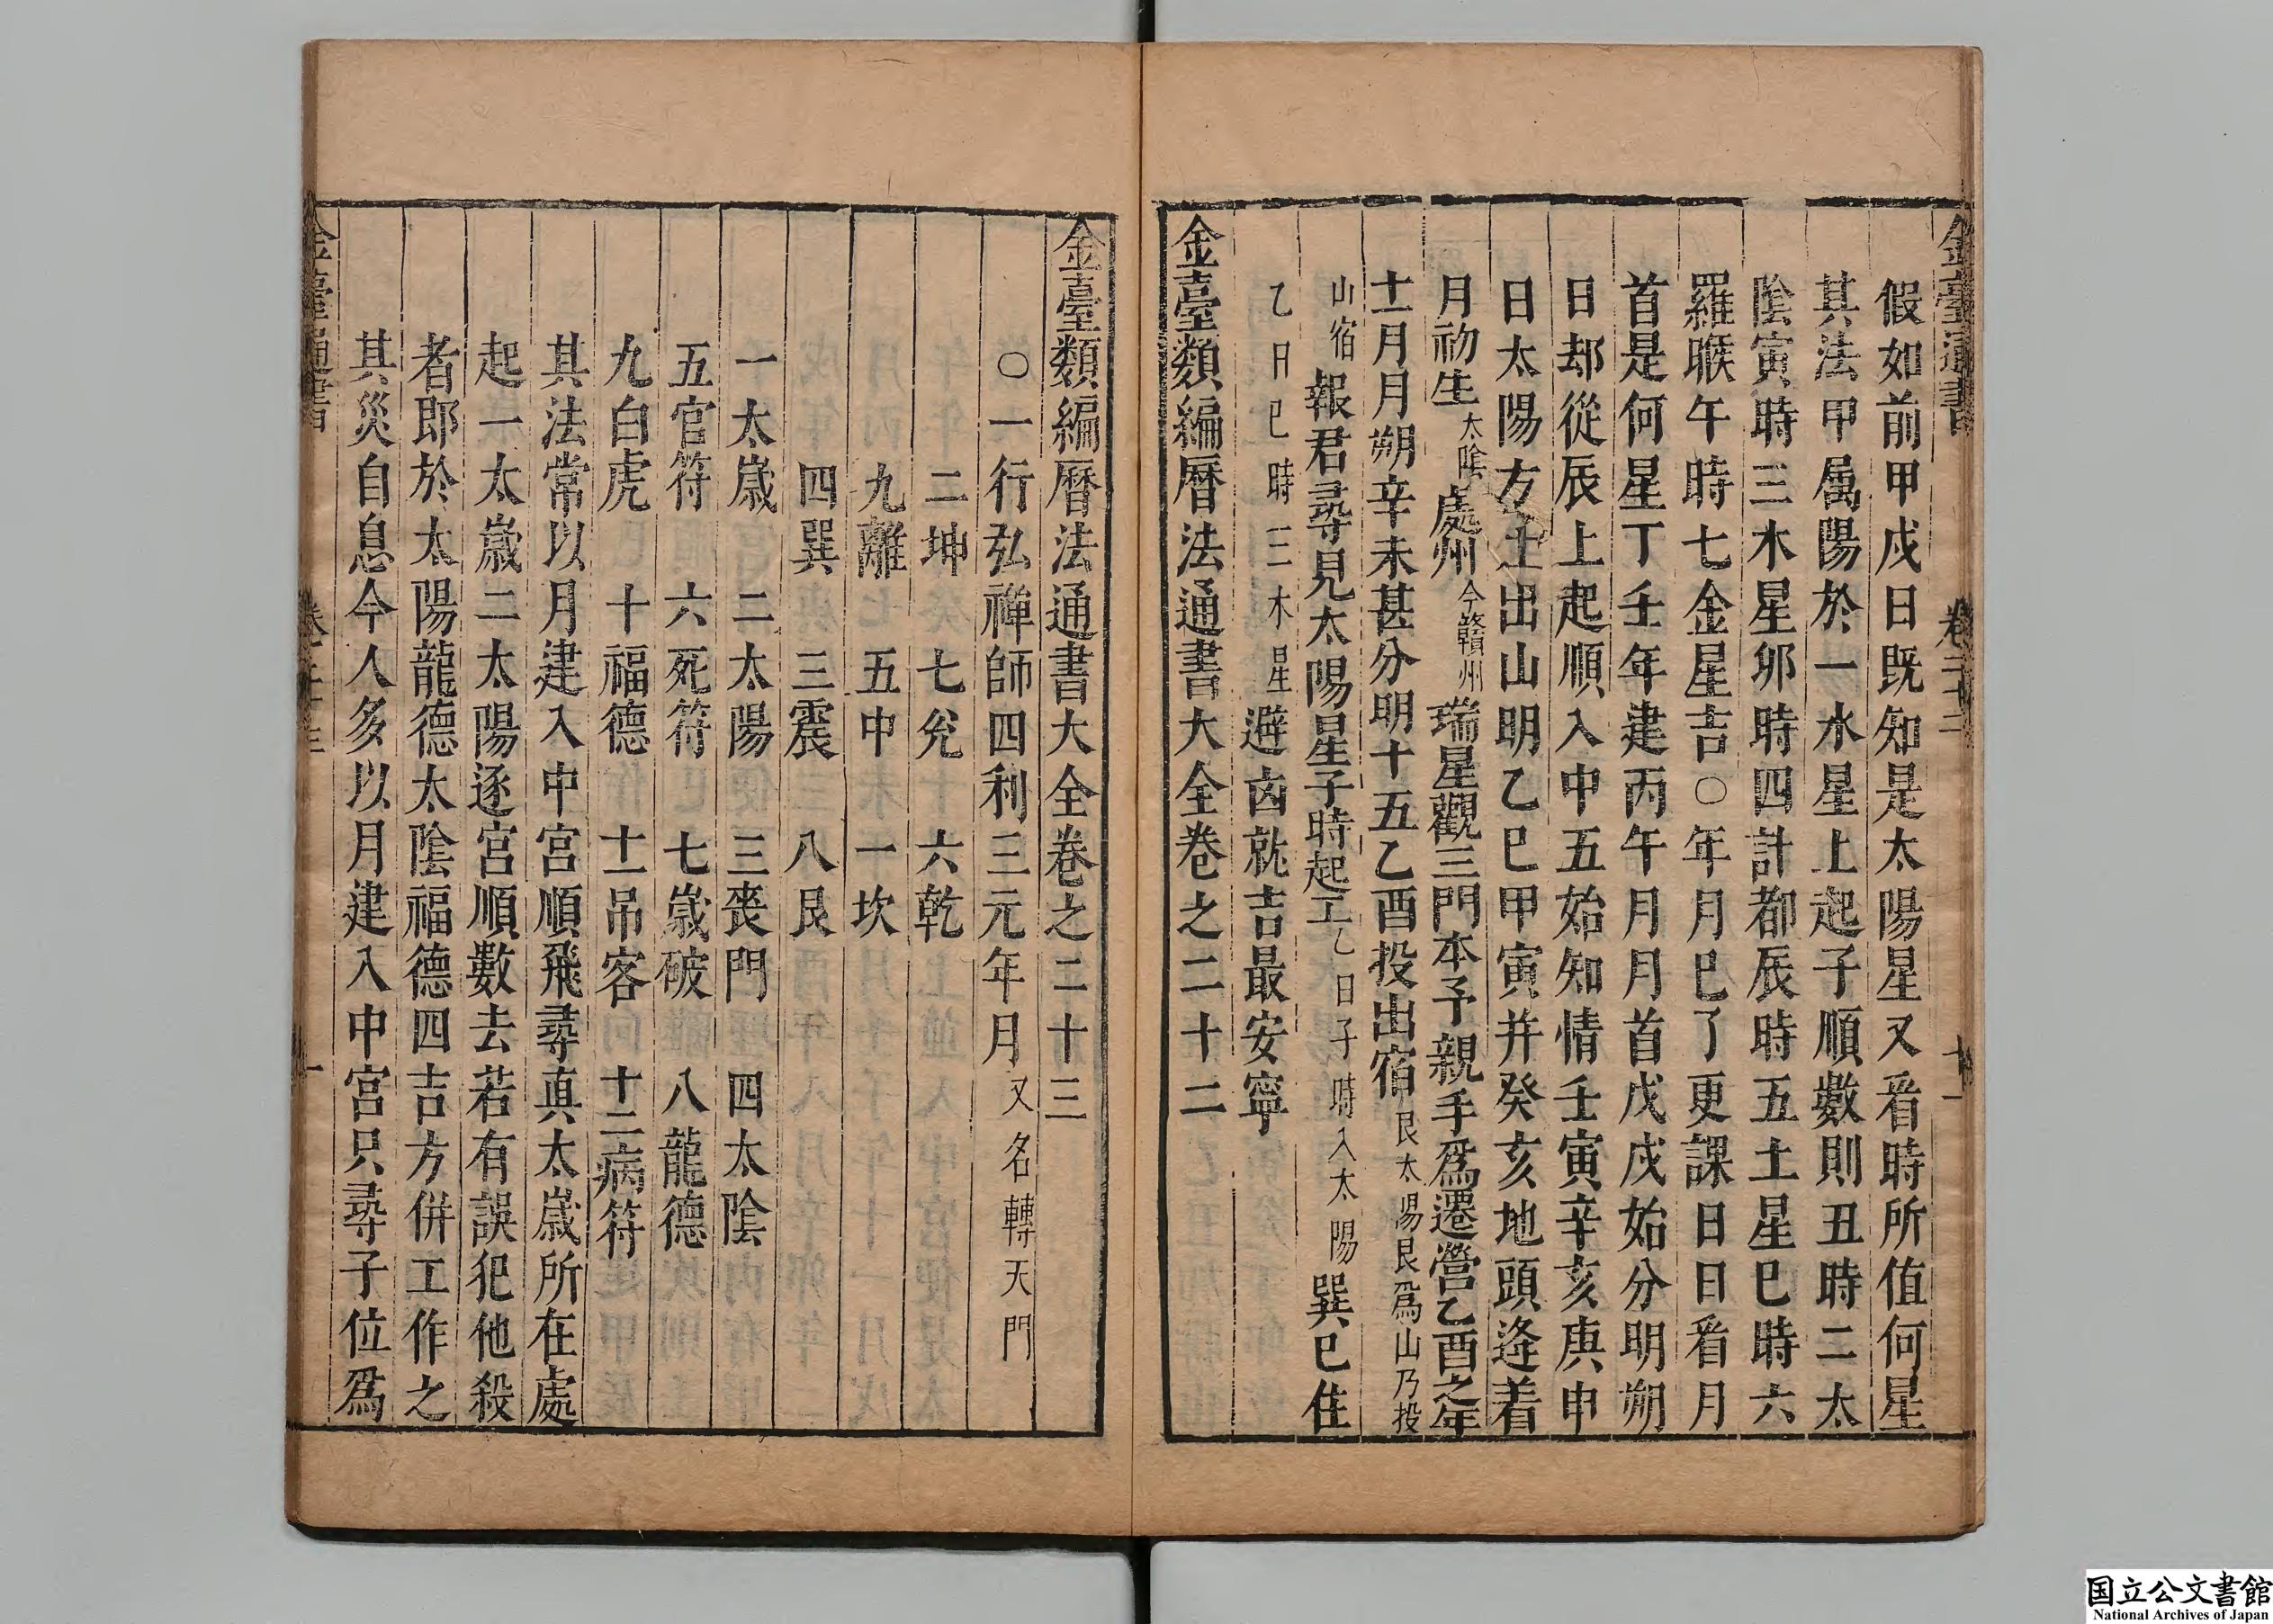 金臺通書 卷二十二 十一
假如前甲戍日既知是太陽星又看時所值何星
其法甲属陽於一水星上起子順數則丑時二太
陰寅時三木星卯時四計都辰時五土星巳時六
羅睺午時七金星吉○年月巳了更課日日看月
首是何星丁壬年建丙午月月首戊戍始分明朔
日却從辰上起順入中五始知情壬寅辛亥庚申
日太陽方土出山明乙巳甲寅并癸亥地頭逄着
月初生太陰處州今贛州瑞星觀三門本予親手爲遷營乙酉之年
十一月月朔辛未甚分明十五乙酉投出宿艮太陽艮爲山乃投
山宿報君尋見太陽星子時起工乙日子時入太陽巽巳住
乙日巳時三木星避㐫就吉最安寧
金臺類編曆法通書大全卷之二十二
金臺類編曆法通書大全卷之二十三
○一行弘禪師四利三元年月又名轉天門
二坤 七兊 六乾
九離 五中 一坎
四巽 三震 八艮
一太歲 二太陽 三喪門 四太陰
五官符 六死符 七歲破 八龍德
九白虎 十福德 十一吊客 十二病符
其法常以月建入中宮順飛尋真太歲所在處
起一太歲二太陽逐宮順數去若有誤犯他殺
者郎於太陽龍德太陰福德四吉方併工作之
其災自息今人多以月建入中宮只尋子位爲
金臺通書 卷二十三 一
国立公文書館
National Archives of Japan